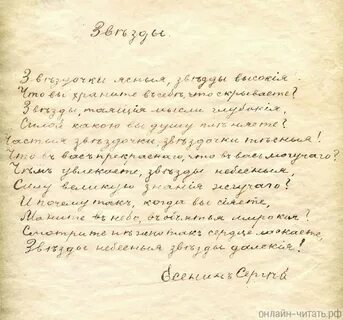 Звѣзды.
Звѣздочки ясныя, звѣзды высокія.
Что вы храните въ себѣ, что скрываете?
Звѣзды, таящія мысли глубокія,
Силой какою вы душу плѣняете?
Частыя звѣздочки, звѣздочки тѣсныя!
Что въ васъ прекраснаго, что въ васъ могучаго?
Чѣмъ увлекаете, звѣзды небесныя,
Силу великую знанія жгучаго?
И почему такъ, когда вы сіяете,
Маните въ небо, въ объятья широкія?
Смотрите нѣжно такъ, сердце ласкаете,
Звѣзды небесныя, звѣзды далекія!
Есенинъ Сергѣй
онлайн-читать.рф